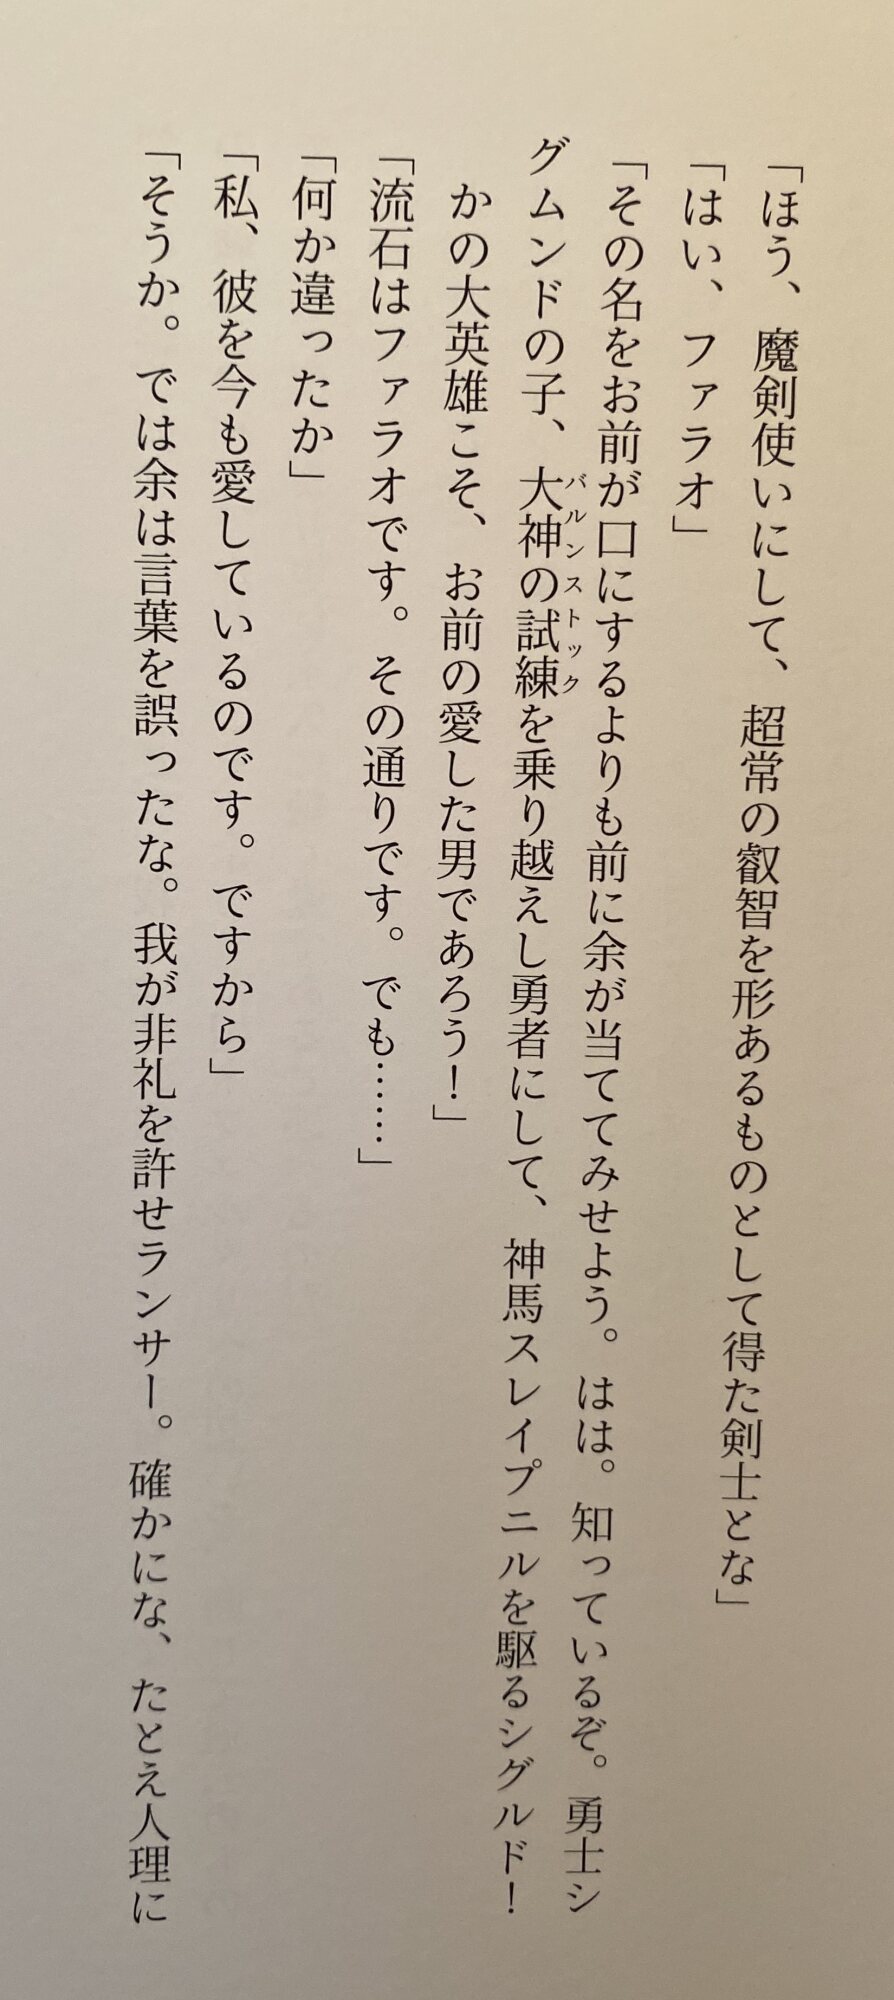 「ほう、魔剣使いにして、超常の叡智を形あるものとして得た剣士とな」
「はい、ファラオ」
「その名をお前が口にするよりも前に余が当ててみせよう。はは。知っているぞ。勇士シ
グムンドの子、大神の試練を乗り越えし勇者にして、神馬スレイプニルを駆るシグルド！
バルンストック
かの大英雄こそ、お前の愛した男であろう！」
「流石はファラオです。その通りです。でも……」
「何か違ったか」
「私、彼を今も愛しているのです。ですから」
「そうか。では余は言葉を誤ったな。我が非礼を許せランサー。確かにな、たとえ人理に